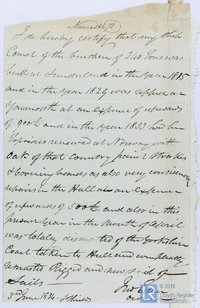 I do hereby certify that my Ship
Comet of the burthen of 240 Tons was
built at Sunderland in the year 1815
and in the year 1829 was repaired at
Yarmouth at an expense of upwards
of 900£ and in the year 1833 had her
Topsides renewed at Norway with
Oak of that Country
& Covering boards as also very considerable
repairs in the Hull at an expense
of upwards of 500£ and also in this
present year in the month of April
was totally dismasted off the Yorkshire
Coast taken to Hull and completely
Masted Rigged and new suit of
Sails
June 1834
Lloyd's Register
Foundation